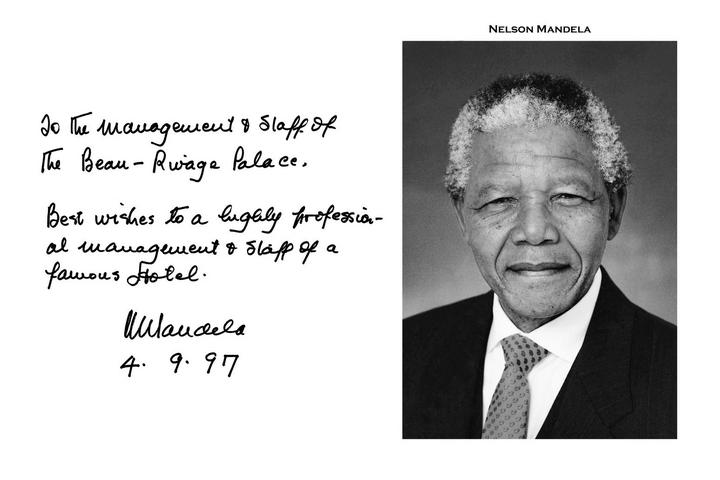 NELSON MANDELA
To the management & staff of
the Beau-Rivage Palace.
Best wishes to a highly profession-
al management & staff of a
famous Hotel.
NMandela
4. 9. 97